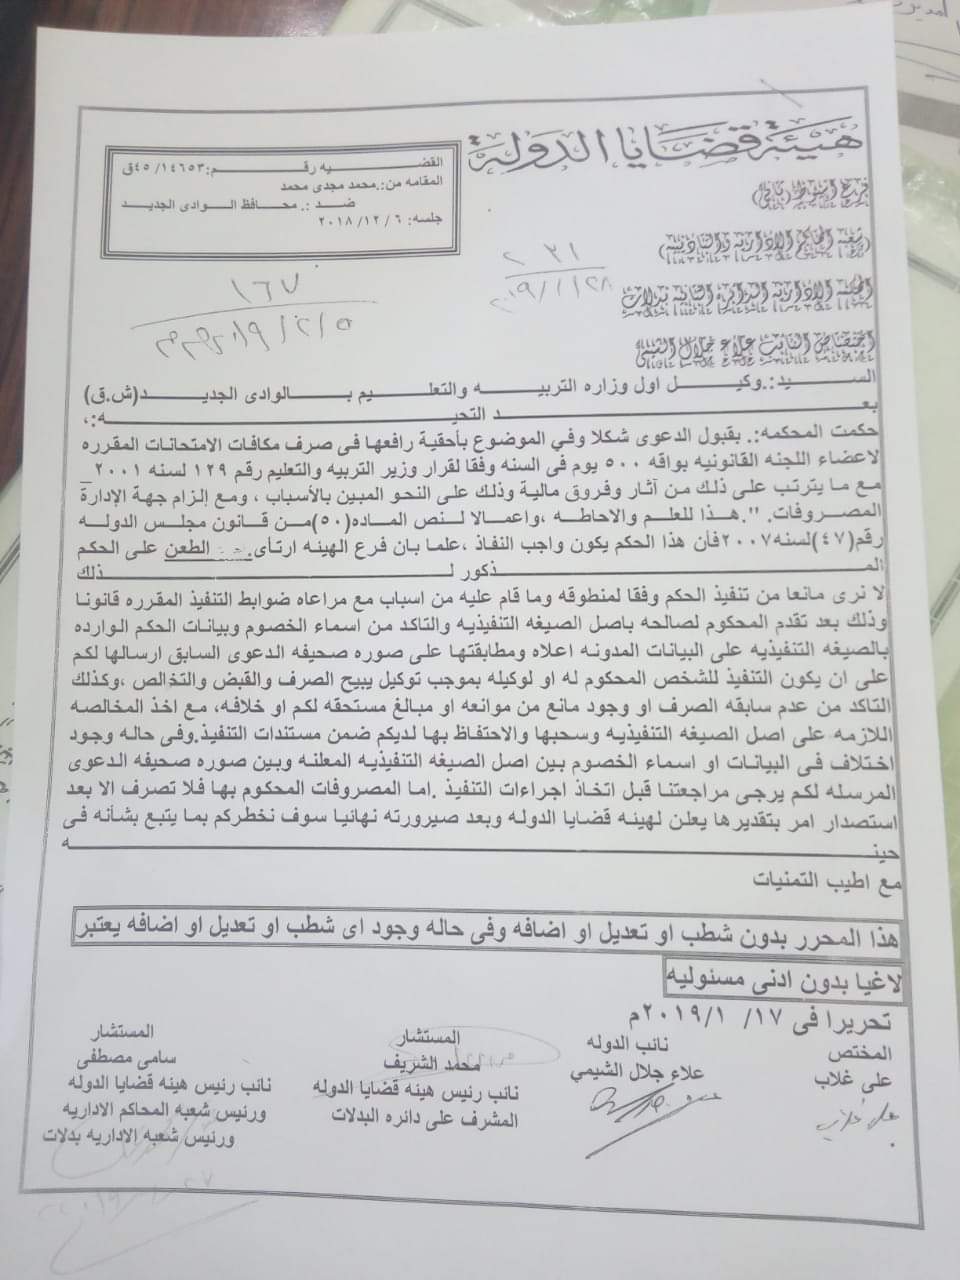 هيئة قضايا الدولة
فرع اسيوط ثانى
شعبة المحاكم الادارية والتاديبية
المحكمة الادارية الدائرة الثانية بدلات
اختصاص النائب علاء جلال الشيمى
القضيه رقم:١٤٦٥٣ /٤٥ق
المقامه من:.محمد مجدى محمد
ضد :. محافظ الوادى الجديد
جلسه: ٦ /١٢ /٢٠١٨
٢٣١
٢٠١٩/١/٢٨
١٦٧
٢٠١٩/٢/٥
السيد:.وكيل اول وزاره التربيه والتعليم بالوادى الجديد(ش.ق)
بعد التحيه:،
حكمت المحكمه:. بقبول الدعوى شكلا وفي الموضوع بأحقية رافعها فى صرف مكافات الامتحانات المقرره
لاعضاء اللجنه القانونيه بواقه ٥٠٠ يوم فى السنه وفقا لقرار وزير التربيه والتعليم رقم ١٢٩ لسنه ٢٠٠١
مع ما يترتب على ذلك من آثار وفروق مالية وذلك على النحو المبين بالأسباب ، ومع إلزام جهة الإدارة
المصروفات. ".هذا للعلم والاحاطه ،واعمالا لنص الماده(٥٠)من قانون مجلس الدوله
رقم(٤٧)لسنه٢٠٠٧فأن هذا الحكم يكون واجب النفاذ ،علما بان فرع الهيئه ارتأى الطعن على الحكم
المذكور لذلك
لا نرى مانعا من تنفيذ الحكم وفقا لمنطوقه وما قام عليه من اسباب مع مراعاه ضوابط التنفيذ المقرره قانونا
وذلك بعد تقدم المحكوم لصالحه باصل الصيغه التنفيذيه والتاكد من اسماء الخصوم وبيانات الحكم الوارده
بالصيغه التنفيذيه على البيانات المدونه اعلاه ومطابقتها على صوره صحيفه الدعوى السابق ارسالها لكم
على ان يكون التنفيذ للشخص المحكوم له او لوكيله بموجب توكيل يبيح الصرف والقبض والتخالص ،وكذلك
التاكد من عدم سابقه الصرف او وجود مانع من موانعه او مبالغ مستحقه لكم او خلافه، مع اخذ المخالصه
اللازمه على اصل الصيغه التنفيذيه وسحبها والاحتفاظ بها لديكم ضمن مستندات التنفيذ.وفى حاله وجود
اختلاف فى البيانات او اسماء الخصوم بين اصل الصيغه التنفيذيه المعلنه وبين صوره صحيفه الدعوى
المرسله لكم يرجى مراجعتنا قبل اتخاذ اجراءات التنفيذ .اما المصروفات المحكوم بها فلا تصرف الا بعد
استصدار امر بتقديرها يعلن لهيئه قضايا الدوله وبعد صيرورته نهائيا سوف نخطركم بما يتبع بشأنه فى
حينه
مع اطيب التمنيات
هذا المحرر بدون شطب او تعديل او اضافه وفى حاله وجود اى شطب او تعديل او اضافه يعتبر
لاغيا بدون ادنى مسئوليه
تحريرا فى ١٧/ ٢٠١٩/١م
المختص
على غلاب
على غلاب
نائب الدوله
علاء جلال الشيمي
المستشار
محمد الشريف
نائب رئيس هيئه قضايا الدوله
المشرف على دائره البدلات
المستشار
سامى مصطفى
نائب رئيس هيئه قضايا الدوله
ورئيس شعبه المحاكم الاداريه
ورئيس شعبه الاداريه بدلات